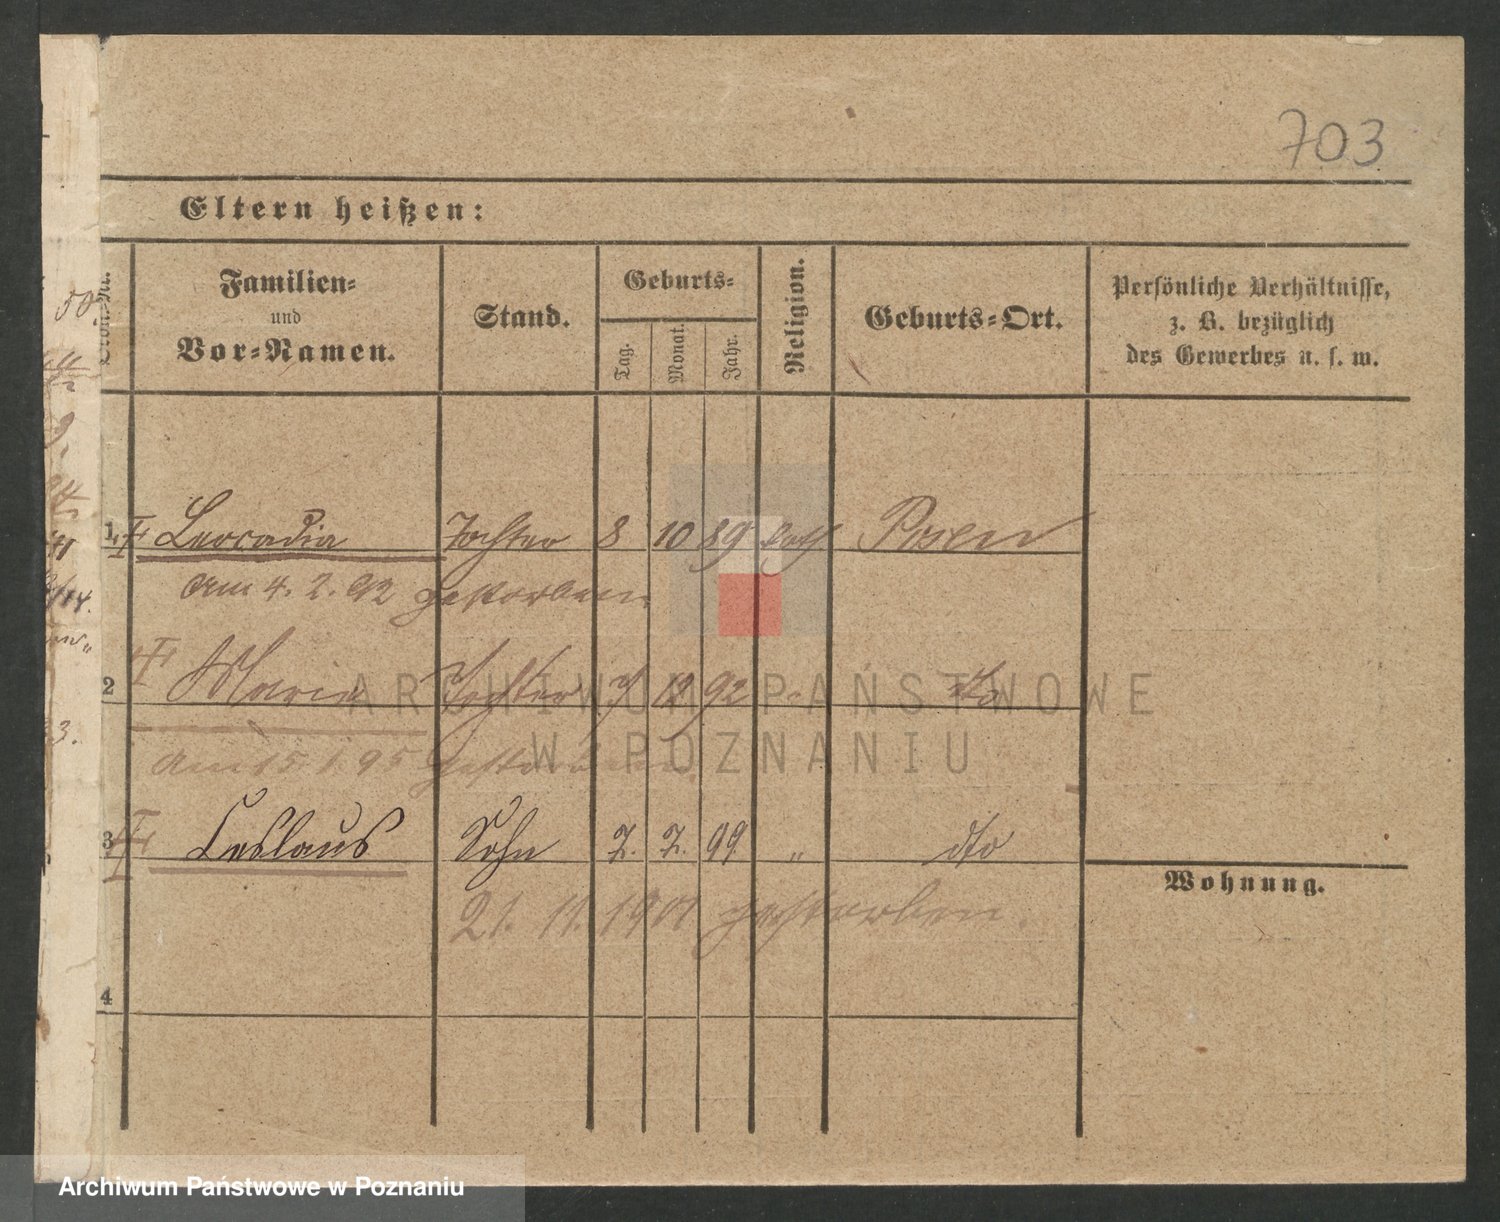 703
Eltern heißen:
Familien-
und
Vor-Namen.
Stand.
Geburts-
Tag.
Monat.
Jahr.
Religion.
Geburts-Ort.
Persönliche Verhältnisse,
z. B. bezüglich
des Gewerbes u. s. w.
50
1 Leocadia Tochter 8 10 89 kath Posen
am 4. 2. 92 gestorben
2 Maria Tochter 12 92 " dto
am 15. 1. 95 gestorben
3 Ceslaus Sohn 7. 7. 99 " dto
Wohnung.
21. 11. 1901 gestorben.
4
3.
ARCHIWUM PAŃSTWOWE
W POZNANIU
Archiwum Państwowe w Poznaniu